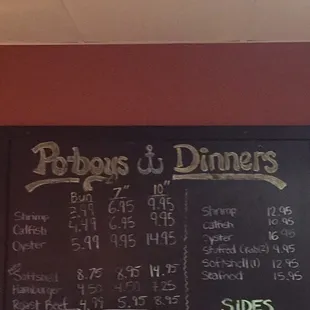 Po-boys Dinners
Bun 7" 10"
Shrimp 3.99 6.95 9.95
Catfish 4.99 6.95 9.95
Oyster 5.99 9.95 14.95
Softshell 8.75 8.95 14.95
Hamburger 4.50 4.50 7.25
Roast Beef 4.99 5.95 8.95
Shrimp 12.95
Catfish 10.95
Oyster 16.95
Stuffed Crab(2) 9.95
Softshell(1) 12.95
Seafood 15.95
SIDES